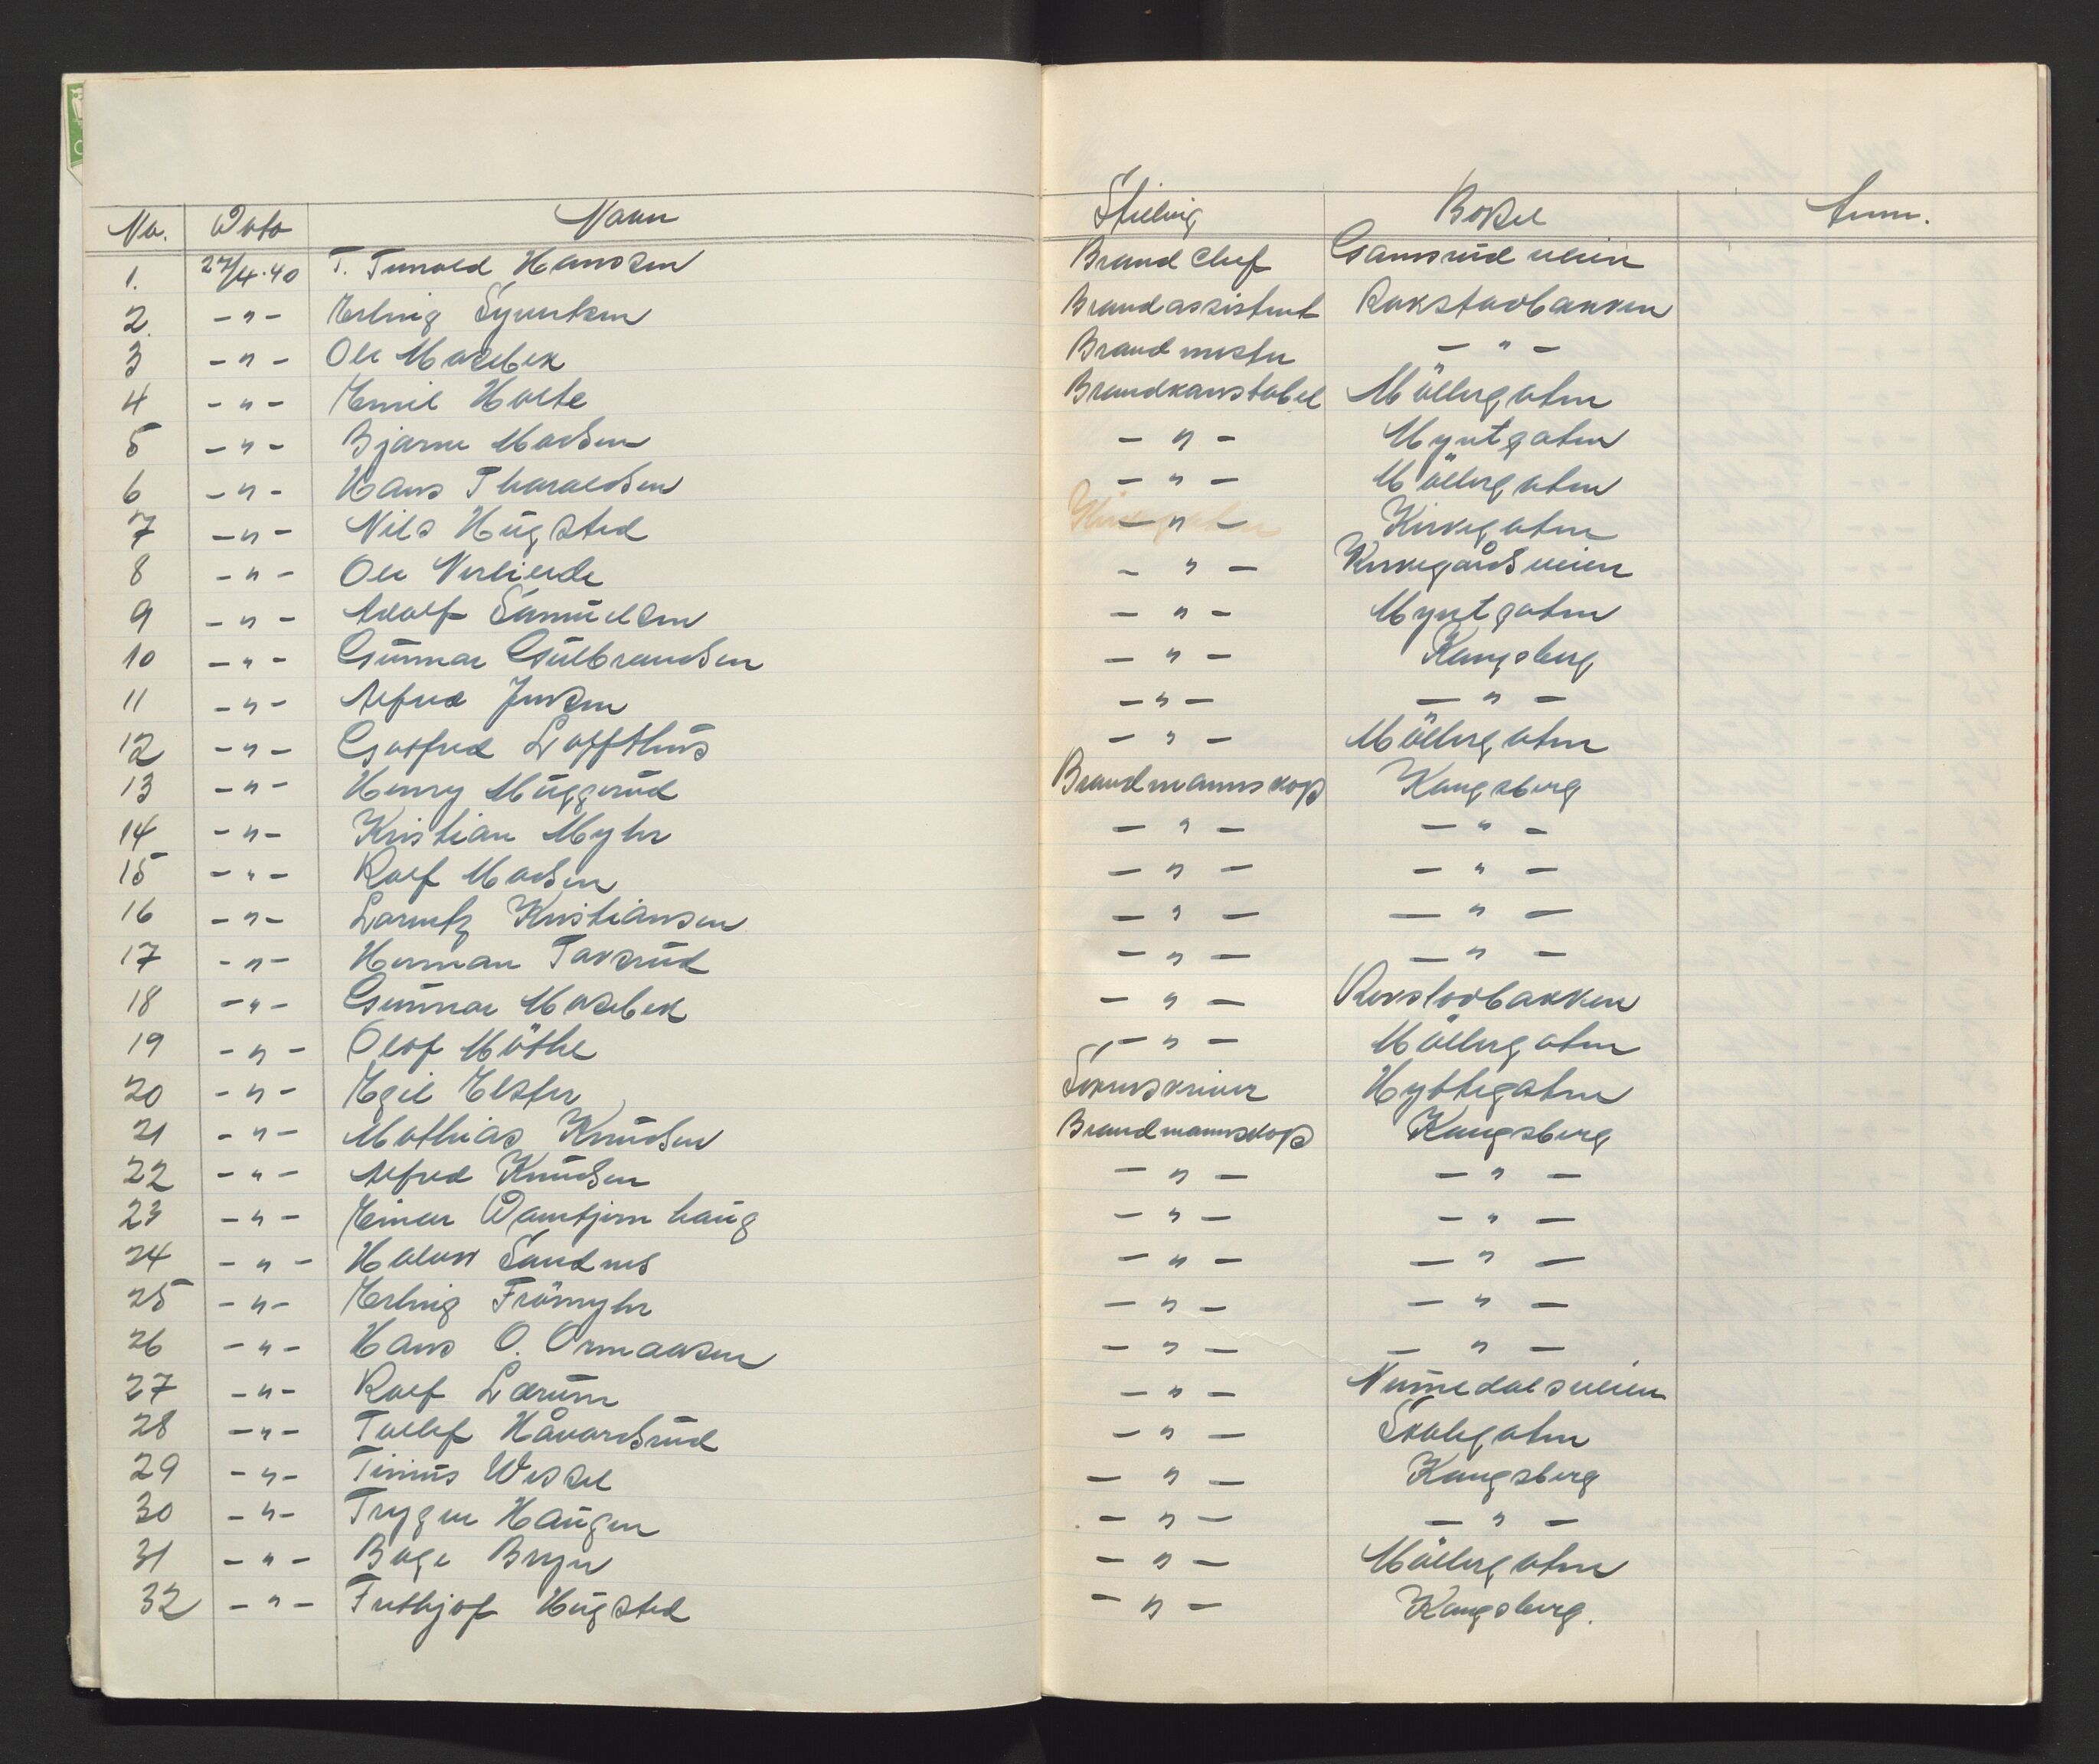 No. Dato Navn Stilling Bopel Anm.
1. 27/4.40 T. Tunold Hanssen Brand Chef Gamsrud veien
2. -"- Erling Syvertsen Brandassistent Rokstadbakken
3 -"- Ole Mosebek Brandmester -"-
4 -"- Emil Holte Brandkonstabel Möllergaten
5 -"- Bjarne Madsen -"- Myntgaten
6 -"- Hans Tharaldsen -"- Möllergaten
7 -"- Nils Hugsted -"- Kirkegaten
8 -"- Ole Verliende -"- Kirkegårdsveien
9 -"- Adolf Samuelsen -"- Myntgaten
10 -"- Gunnar Gulbrandsen -"- Kongsberg
11 -"- Alfred Jensen -"- -"-
12 -"- Gotfred Loffthus -"- Möllergaten
13 -"- Henry Muggerud Brandmannskap Kongsberg
14 -"- Kristian Myhr -"- -"-
15 -"- Rolf Madsen -"- -"-
16 -"- Lorentz Kristiansen -"- -"-
17 -"- Herman Taksrud -"- -"-
18 -"- Gunnar Mosebek -"- Rokstadbakken
19 -"- Olaf Möthe -"- Möllergaten
20 -"- Egil Elster Sekreskriver Hyttegaten
21 -"- Mathias Knudsen Brandmannskap Kongsberg
22 -"- Alfred Knudsen -"- -"-
23 -"- Einar Damtjern haug -"- -"-
24 -"- Halvor Sandnes -"- -"-
25 -"- Erling Frömyhr -"- -"-
26 -"- Hans O. Ormaasen -"- -"-
27 -"- Rolf Lærum -"- Numedalsveien
28 -"- Tollef Håvardsrud -"- Skolegaten
29 -"- Tinius Wessel -"- Kongsberg
30 -"- Trygve Haugen -"- -"-
31 -"- Båge Bryn -"- Möllergaten
32 -"- Frithjof Hugsted -"- Kongsberg.